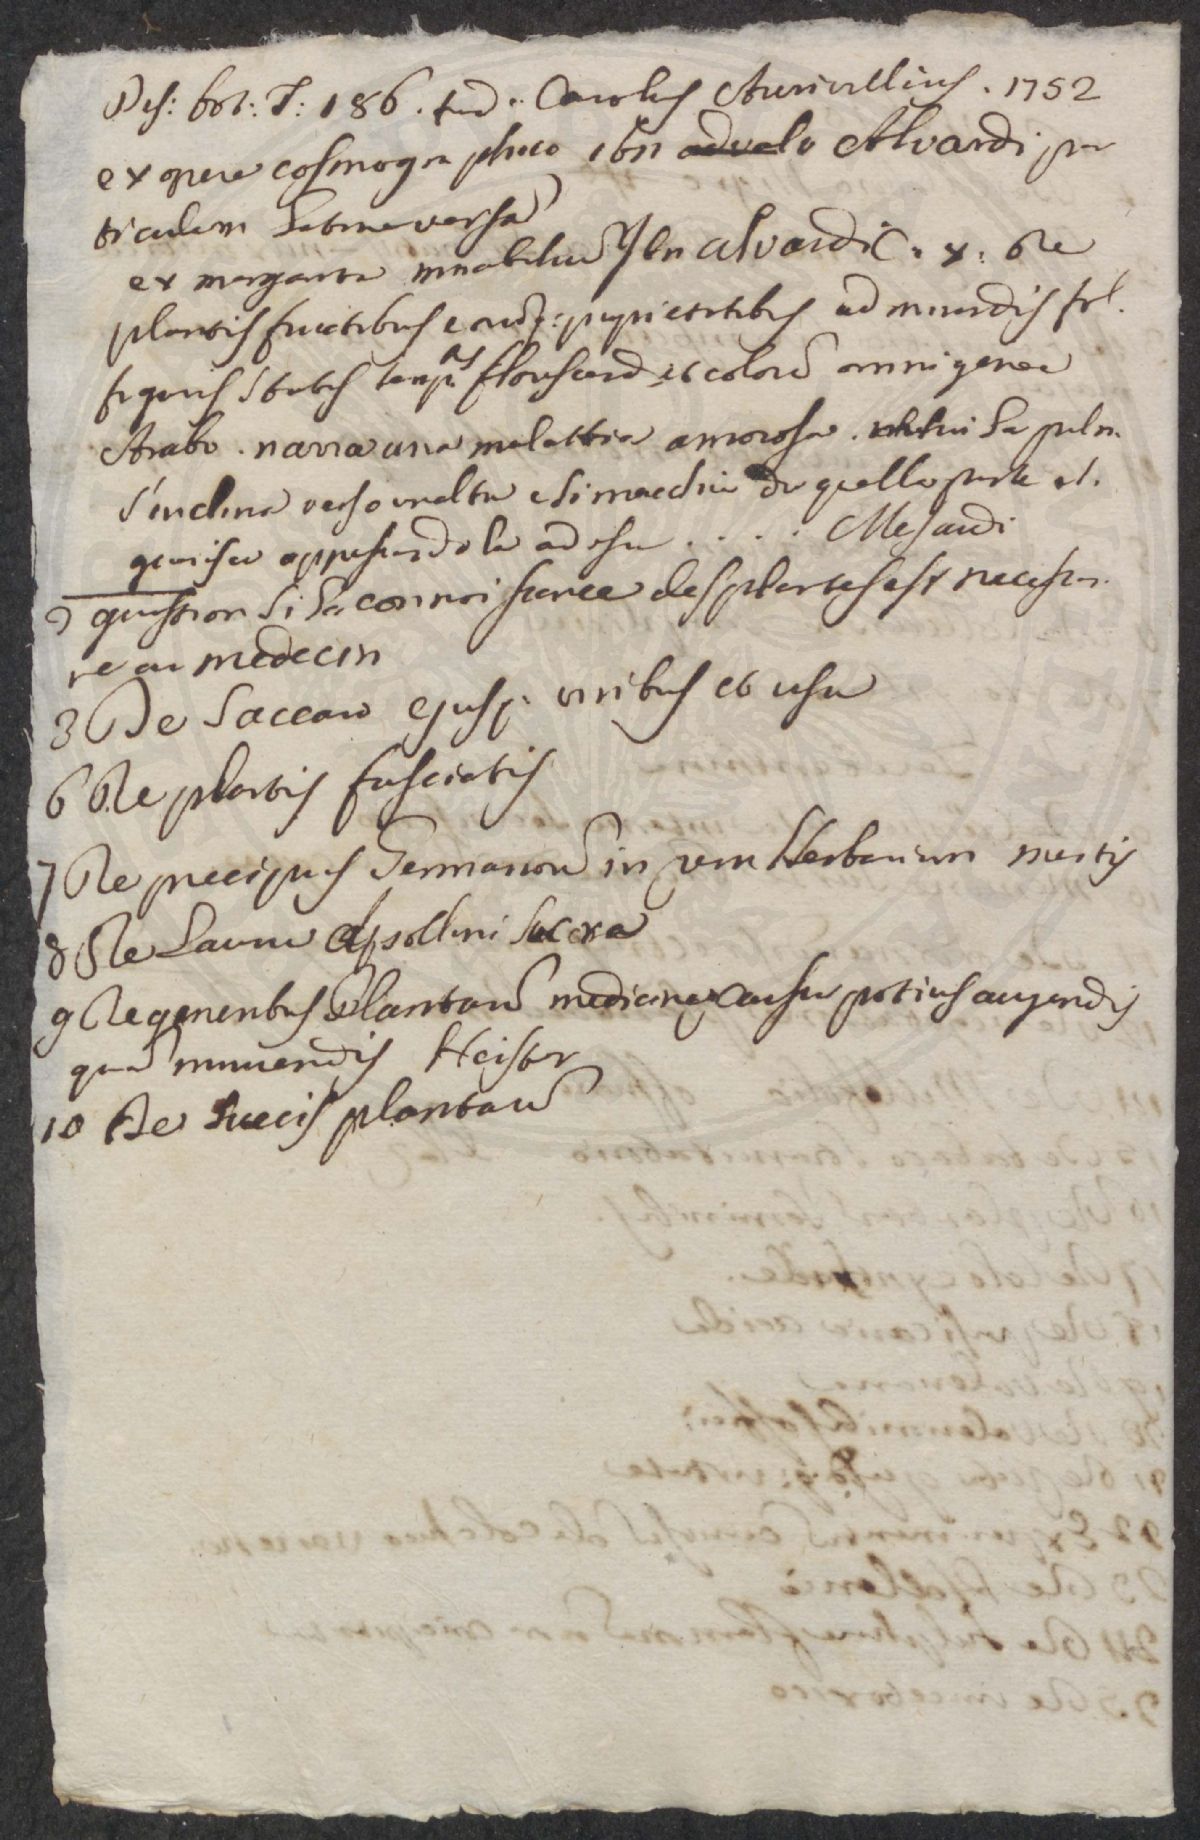 Des: bot: T: 186. tud.. Carolus Aurivillius. 1752
ex opere cosmogra phico ibn Alvardi par
ticulam Latine versa
ex margarita mirabilium Ibn alvardi C. x: De
plantis fructibus eorum proprietatibus admirandis fol.
figuris temp. florescend et colorum omnigenea
Arabo. narra una malattia amorosa. la palm.
s'inclina verso un altra e si di quella parte et.
guarisce appressandola ad essa . . . . Mesaudi
2 question si la connoissance des plantes est necessai
re au medecin
3 De Saccaro ejusq: viribus et usu
6 De plantis fasciatis
7 De precipuis Germanorum in rem Herbariam meritis
8 De Lauru Apollini sacra
9 De generibus Plantarum medicinae causa potius augendis
quam minuendis Heister
10 De Succis plantarum